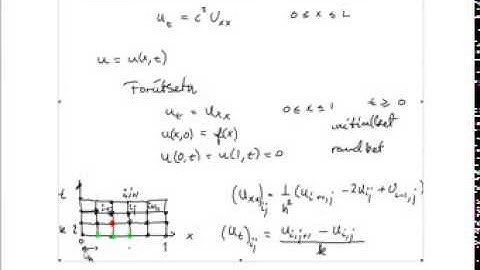 u_t = c² U_xx   0 ≤ x ≤ L
u = u(x,t)
Forutsetn
u_t = u_xx   0 ≤ x ≤ 1   t ≥ 0
u(x,0) = f(x)   initialbet
u(0,t) = u(1,t) = 0   randbet
(u_xx)_ij = 1/h² (u_i+1,j - 2u_ij + u_i-1,j)
(u_t)_ij = (u_i,j+1 - u_i,j) / k
t
i,j+1
k
0   1   x
h